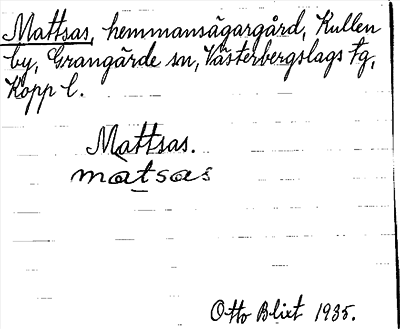 Mattsas, hemmansägargård, Kullen
by, Grangärde sn, Västerbergslags fg,
Kopp l.
Mattsas.
matsas
Otto Blixt 1935.